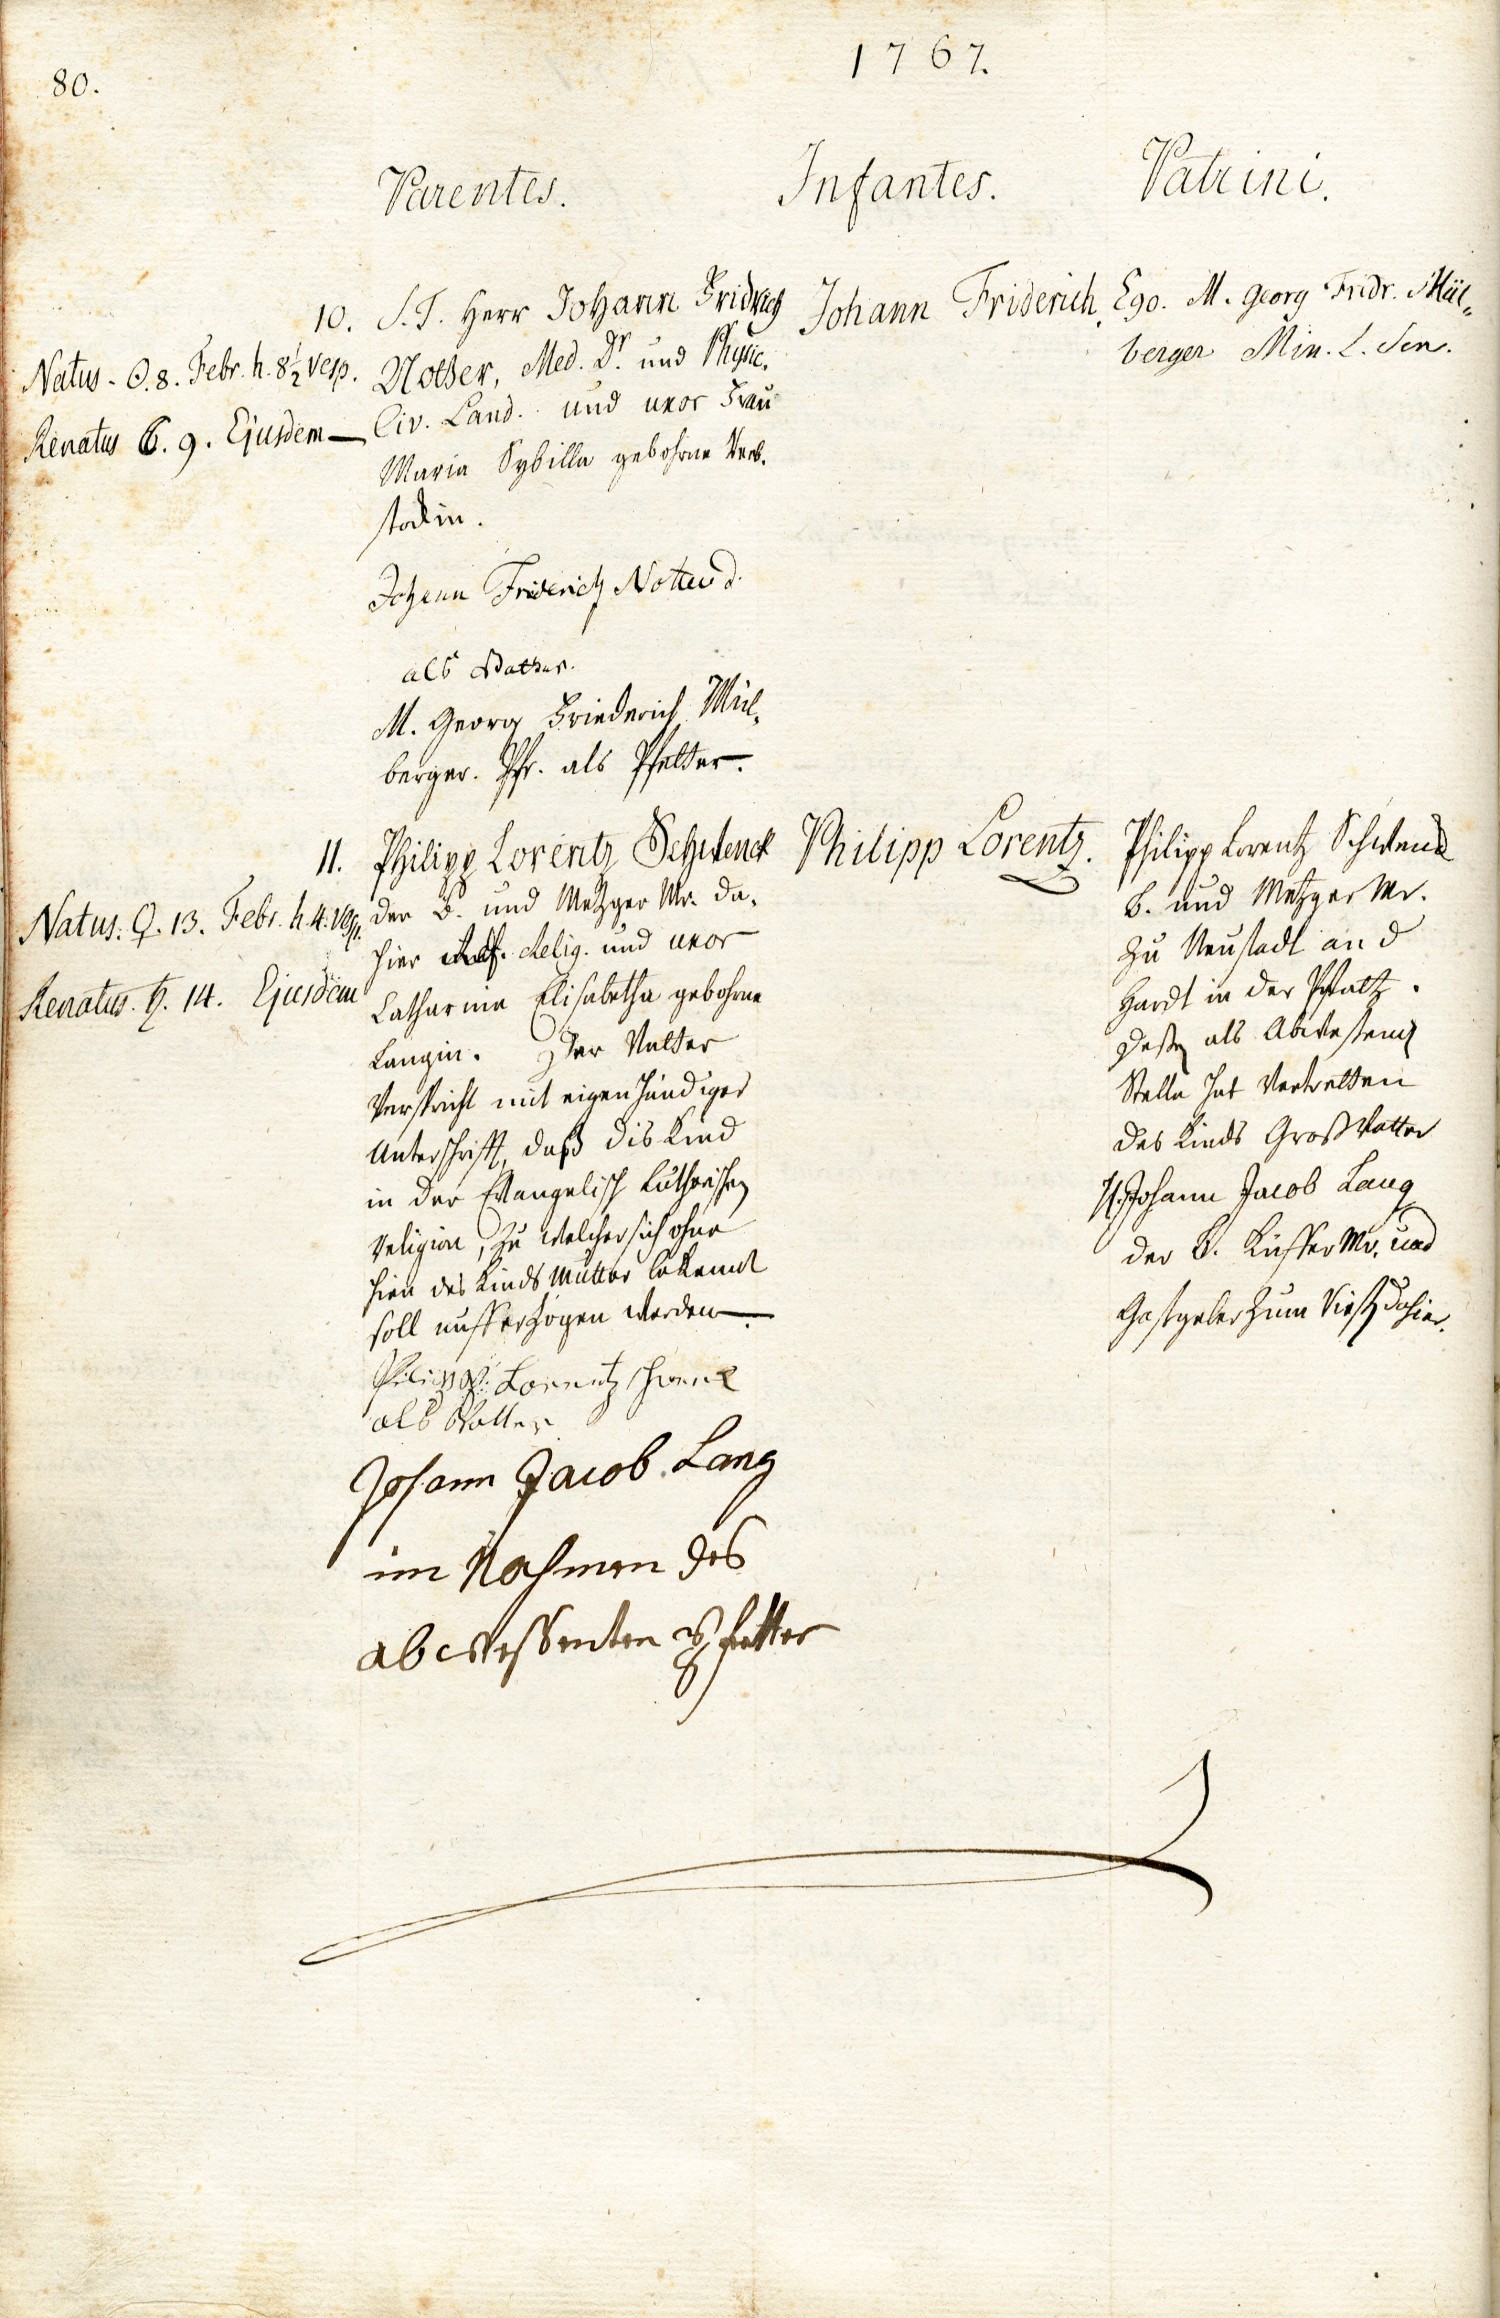 80.
1767.
Parentes.
Infantes.
Patrini.
10. S. T. Herr Johann Fridrich
Natus. ☉. 8. Febr. h. 8½ Vesp.
Notter, Med. Dr. und Physic.
Renatus ☾. 9. Ejusdem
Civ. Land. und uxor Frau
Maria Sybilla gebohrne
stockin.
Johann Friderich Notter d.
als Vatter.
M. Georg Friederich Mül-
berger. Pfr. als Pfetter.
Johann Friderich.
Ego. M. Georg Fridr. Mül-
berger Min. L. Sen.
11. Philipp Lorentz Schwenck
Natus. ♀. 13. Febr. h. 4. Vesp.
der B. und Metzger Mr. da-
hier Ref. Relig. und uxor
Renatus. ♄. 14. Ejusdem
Catharina Elisabetha gebohrne
Langin. Der Vatter
verspricht mit eigenhändiger
Unterschrifft, daß dis Kind
in der Evangelisch Lutherischen
Religion, zu welcher sich ohne
hien des Kinds Mutter bekennt
soll aufferzogen werden.
Philipp Lorentz Schwenck
als Vatter
Johann Jacob Lang
im Nahmen des
abwessenten Pfetter
Philipp Lorentz.
Philipp Lorentz Schwenck
B. und Metzger Mr.
zu Neustadt an d
Hardt in der Pfaltz.
Deßen als Abwesend
Stelle hat vertretten
des Kinds Großvatter
H. Johann Jacob Lang
der B. Küffer Mr. und
Gastgeber zum dahier.